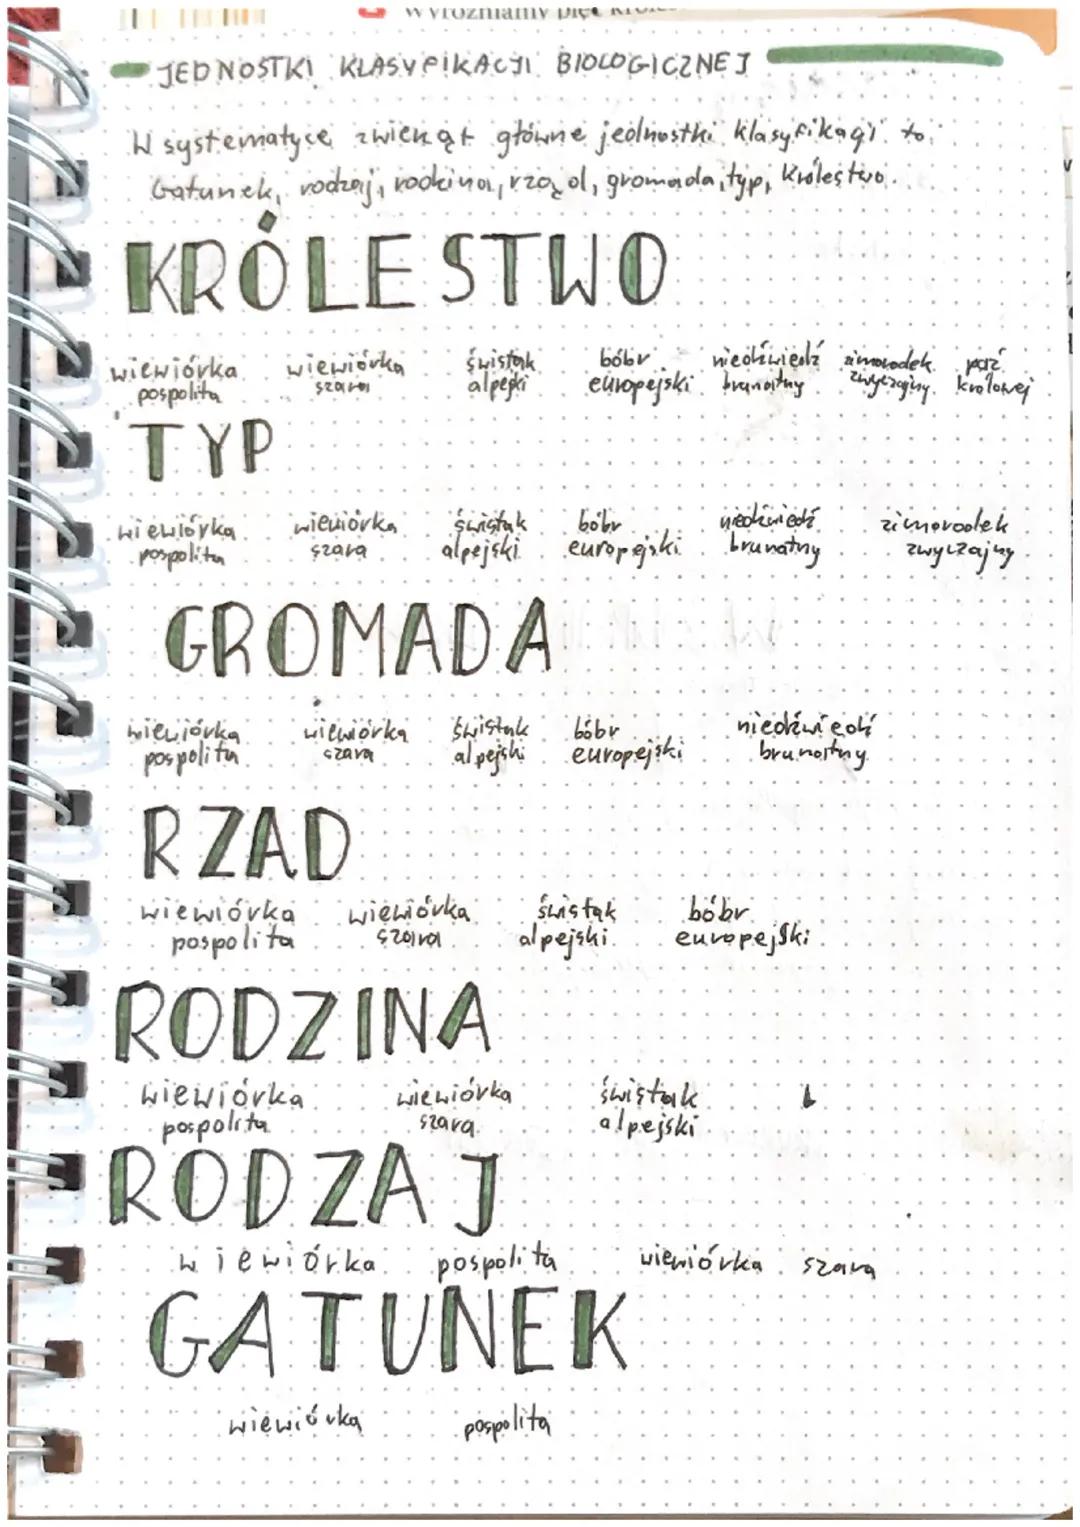 Wyróżniamy pięć króle
JEDNOSTKI KLASYFIKACJI BIOLOGICZNEJ
W systematyce zwierząt główne jednostki klasyfikacji to:
Gatunek, rodzaj, rodzina, rząd, gromada, typ, Królestwo.
KRÓLESTWO
wiewiórka wiewiórka świstak bóbr niedźwiedź zimorodek paź
pospolita szara alpejski europejski brunatny zwyczajny królowej
TYP
wiewiórka wiewiórka świstak bóbr niedźwiedź zimorodek
pospolita szara alpejski europejski brunatny zwyczajny
GROMADA
wiewiórka wiewiórka świstak bóbr niedźwiedź
pospolita szara alpejski europejski brunatny
RZAD
wiewiórka wiewiórka świstak bóbr
pospolita szara alpejski europejski
RODZINA
wiewiórka wiewiórka świstak
pospolita szara alpejski
RODZAJ
wiewiórka pospolita wiewiórka szara
GATUNEK
wiewiórka pospolita